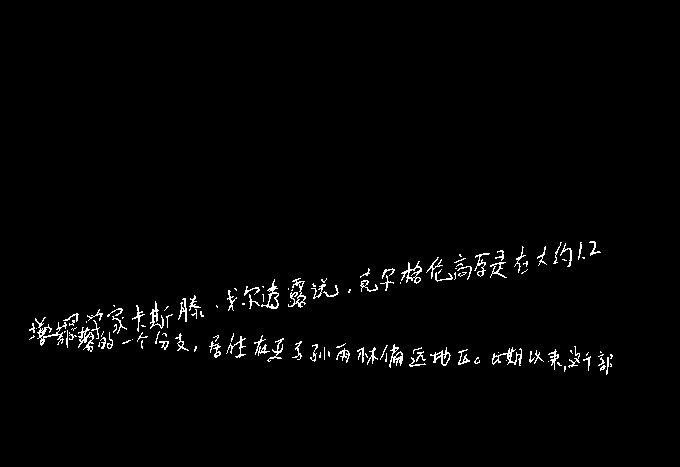 家卡斯滕·戈尔透露说,克尔格伦高原是在大约1.2
部落的一个分支,居住在亚马孙雨林偏远地区。长期以来,这个部